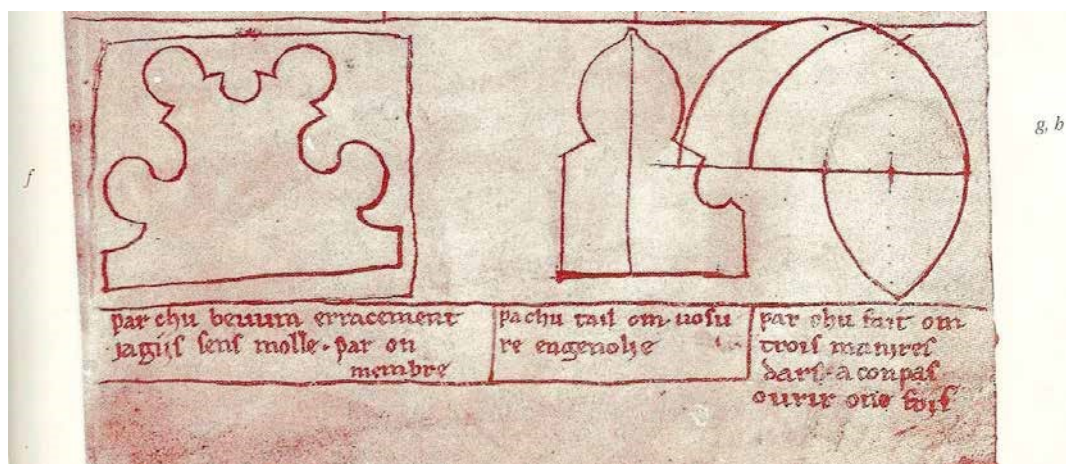 f
g, h
par chu bevum erracement
jagijs sens molle. par on
membre
pa chu tail om. uosu
re engenolie
par chu fait om
trois manires
dars. a conpas
ourir one fois